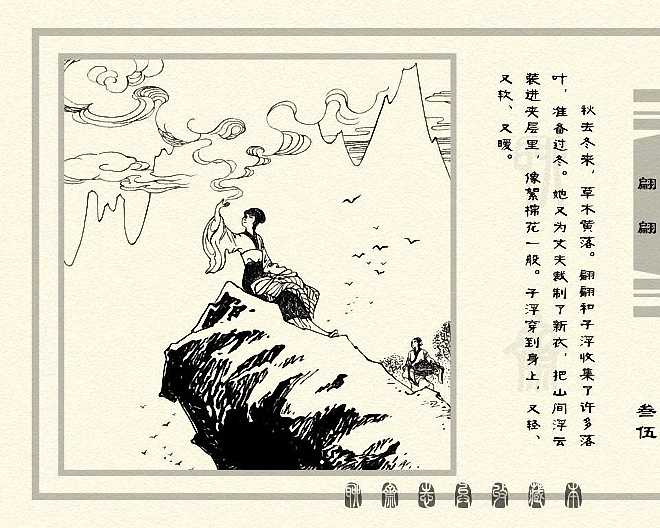 秋去冬来，草木黄落。翩翩和子浮收集了许多落
叶，准备过冬。她又为丈夫裁制了新衣，把山间浮云
装进夹层里，像絮棉花一般。子浮穿到身上，又轻、
又软、又暖。
翩翩
叁伍
聊斋志异收藏本